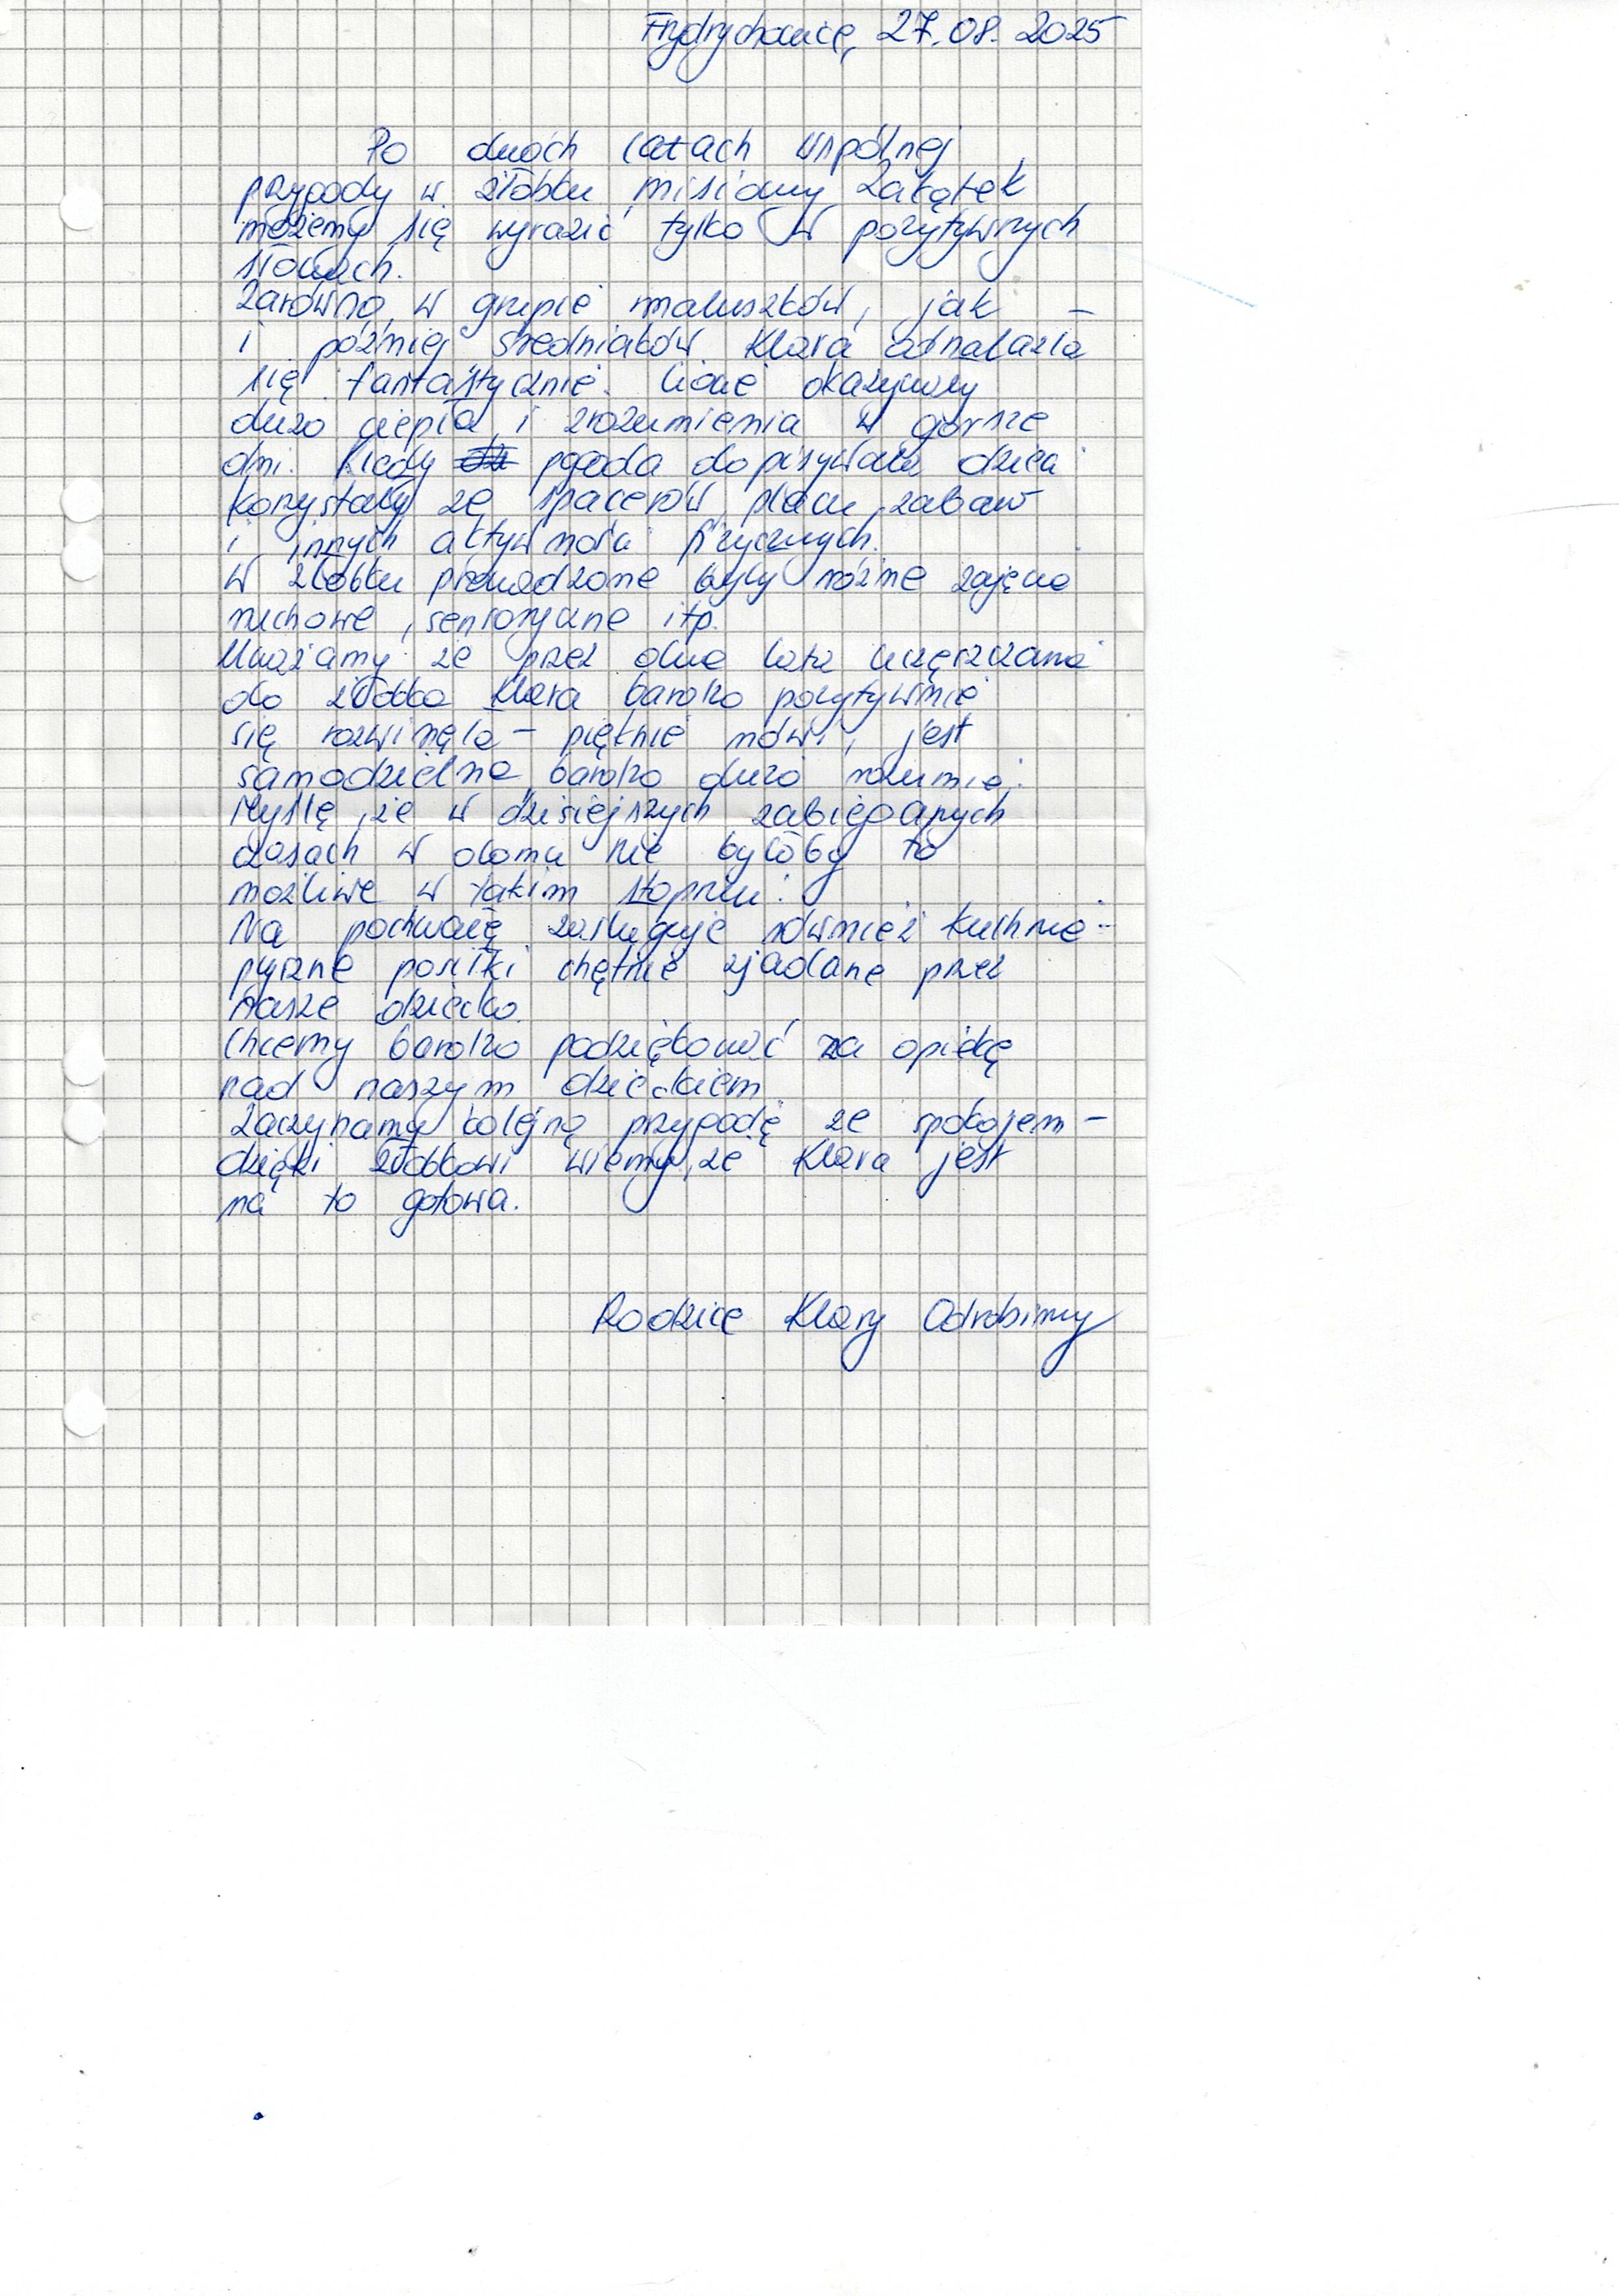 Frydrychowice, 27.08.2025
Po dwóch latach wspólnej
przygody w żłobku misiowy zakątek
możemy się wyrazić tylko w pozytywnych
słowach.
Zarówno w grupie maluszków, jak -
i później średniaków Klara odnalazła
się fantastycznie. Ciocie okazywały
dużo ciepła i zrozumienia w gorsze
dni. Kiedy pogoda dopisywała dzieci
korzystały ze spacerów, placu zabaw
i innych aktywności fizycznych.
W żłobku prowadzone były różne zajęcia
ruchowe, sensoryczne itp.
Uważamy że przez dwa lata uczęszczania
do żłobka Klara bardzo pozytywnie
się rozwinęła - pięknie mówi, jest
samodzielna, bardzo dużo rozumie.
Myślę, że w dzisiejszych zabieganych
czasach w domu nie byłoby to
możliwe w takim stopniu.
Na pochwałę zasługuje również kuchnia -
pyszne posiłki chętnie zjadane przez
nasze dziecko.
Chcemy bardzo podziękować za opiekę
nad naszym dzieckiem
Zaczynamy kolejną przygodę ze spokojem -
dzięki żłobkowi wiemy, że Klara jest
na to gotowa.
Rodzice Klary Odrobiny